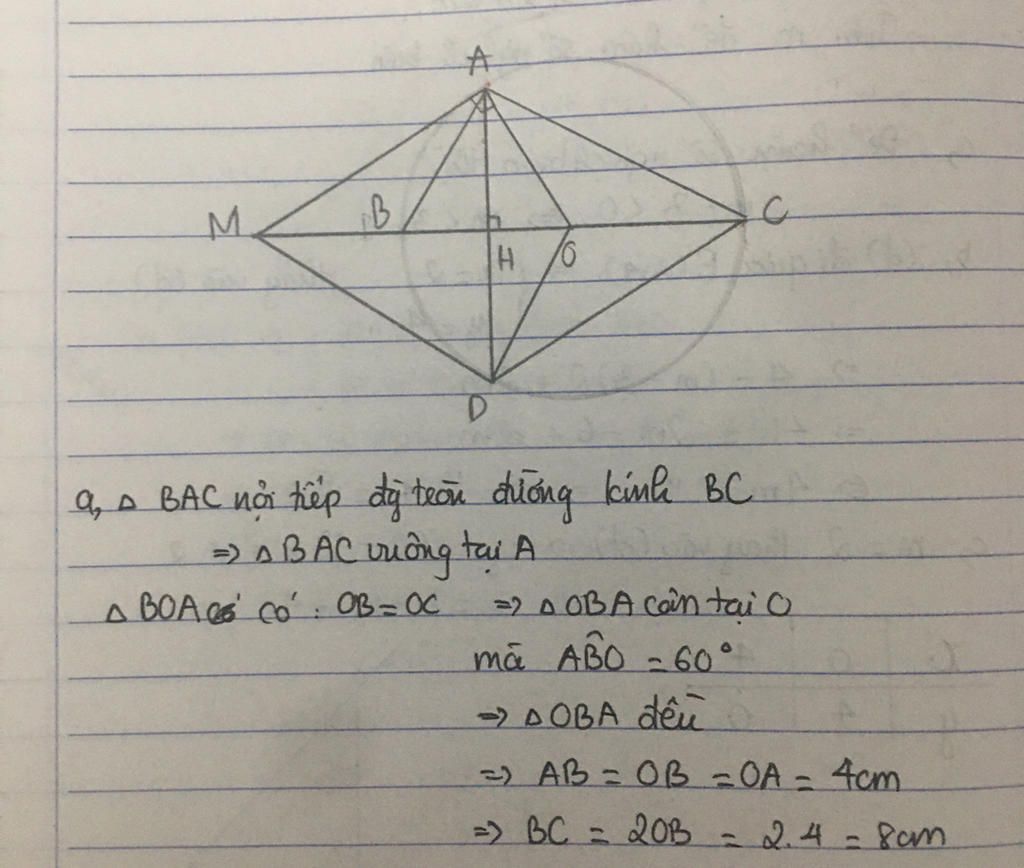 A
M
B
C
H
O
D
a, △ BAC nội tiếp đg tròn đường kính BC
=> △ BAC vuông tại A
△ BOA có : OB = OC => △ OBA cân tại O
mà ABO = 60°
=> △ OBA đều
=> AB = OB = OA = 4cm
=> BC = 2OB = 2.4 = 8cm